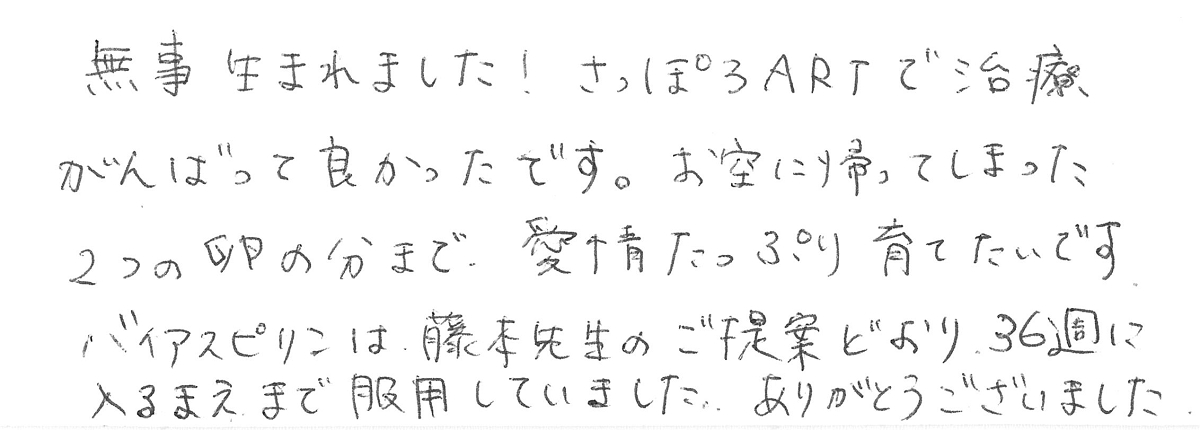 無事生まれました! さっぽろARTで治療
がんばって良かったです。お空に帰ってしまった
2つの卵の分まで、愛情たっぷり育てたいです
バイアスピリンは、藤本先生のご提案どおり、36週に
入るまえまで服用していました。ありがとうございました.